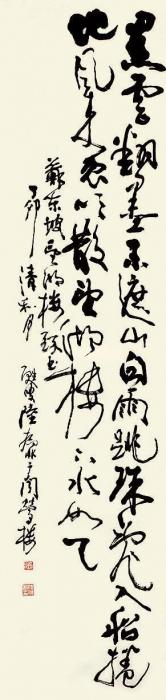 黑雲翻墨未遮山白雨跳珠亂入船捲
地風來忽吹散望湖樓下水如天
蘇東坡望湖樓醉書
丁卯清和月 陸 於聞鶯樓